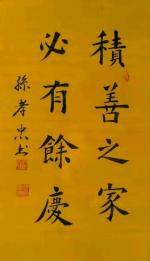 積善之家
必有餘慶
孫孝忠书